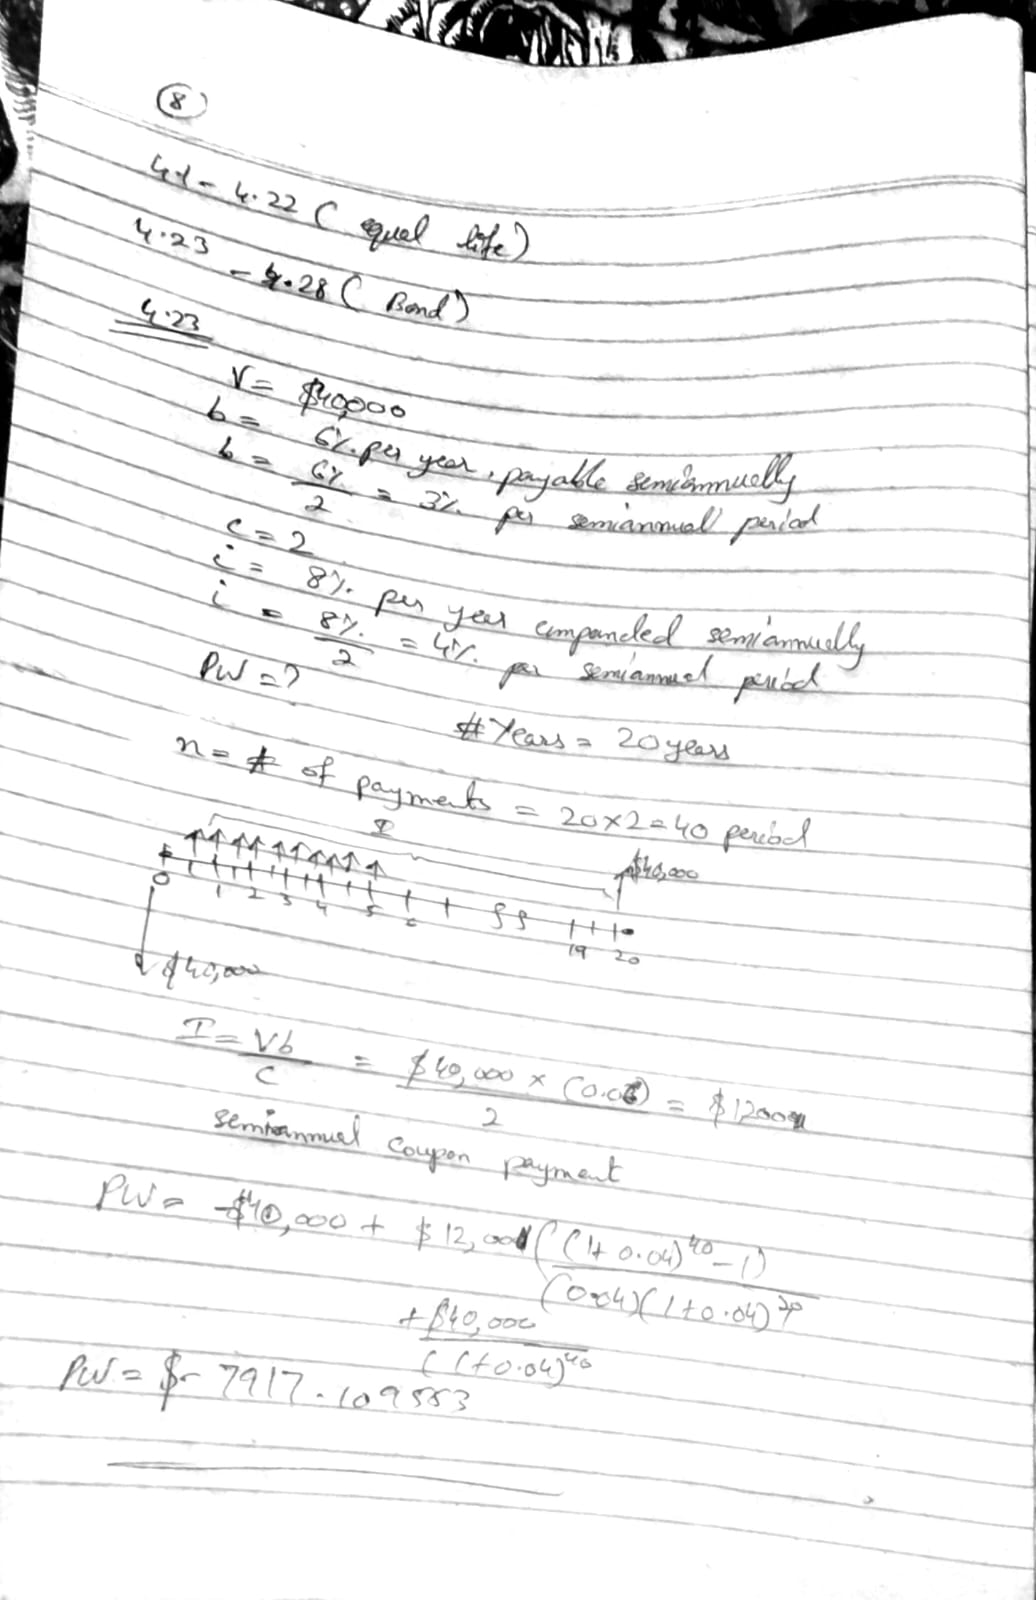 8
4.1 - 4.22 ( equal life )
4.23 - 4.28 ( Bond )
4.23
V = $40,000
b = 6% per year, payable semiannually
b = 6% / 2 = 3% per semiannual period
c = 2
i = 8% per year compounded semiannually
i = 8% / 2 = 4% per semiannual period
PW = ?
# Years = 20 years
n = # of payments = 20×2=40 period
I
$40,000
0 1 2 3 4 5 6 19 20
$40,000
I = Vb / c = $40,000 × (0.06) / 2 = $1200
semiannual coupon payment
PW = -$40,000 + $12,00 ( (1+0.04)^40 - 1 ) / (0.04)(1+0.04)^40
+ $40,000 / (1+0.04)^40
PW = $- 7917.109553